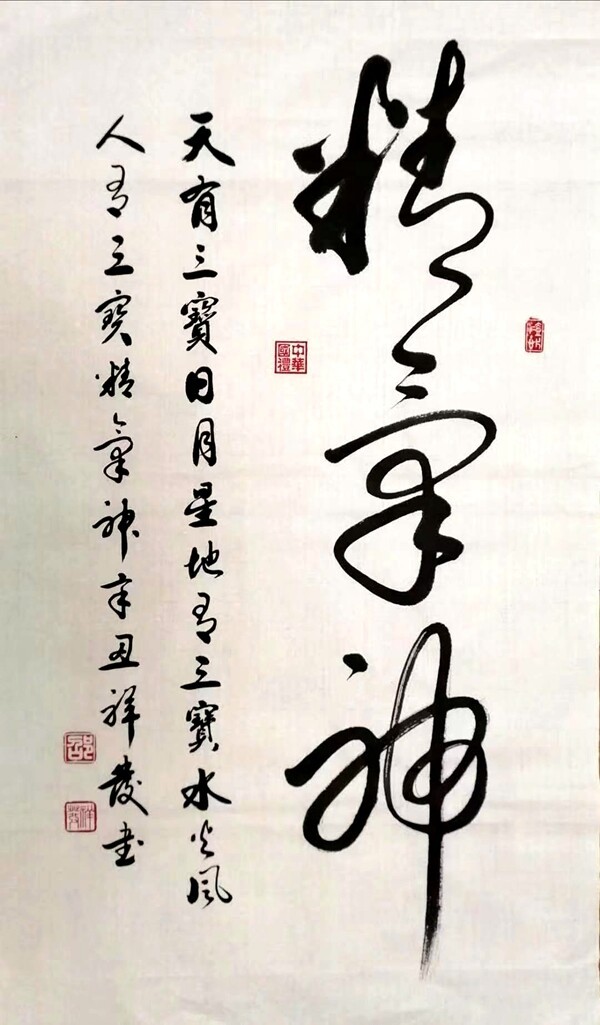 精氣神
天有三寳日月星地有三寳水火風
人有三寳精氣神辛丑祥發書
中華國禮
邵
祥發